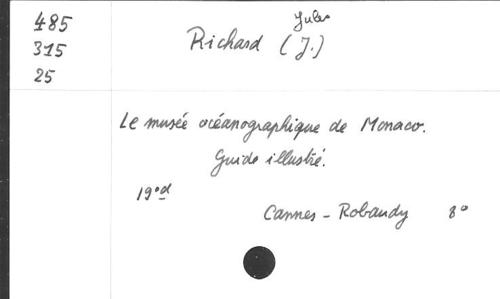 485
315
25
Jules
Richard (J.)
Le musée océanographique de Monaco.
Guide illustré.
19° éd
Cannes - Robaudy 8°